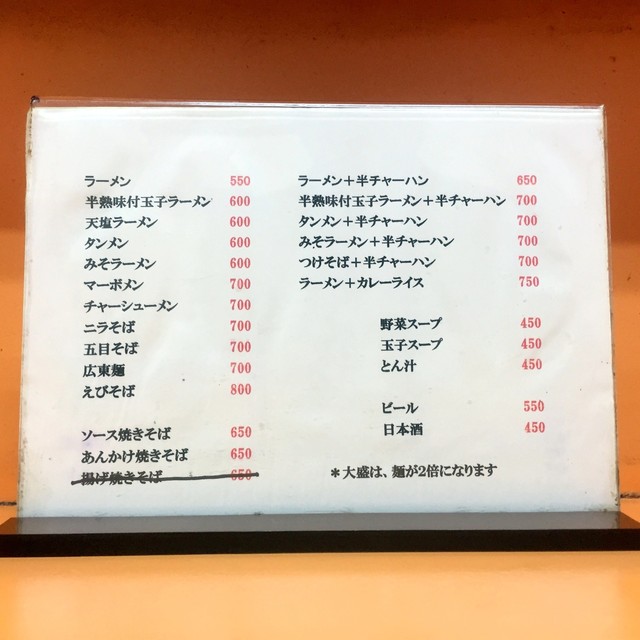 ラーメン 550
半熟味付玉子ラーメン 600
天塩ラーメン 600
タンメン 600
みそラーメン 600
マーボメン 700
チャーシューメン 700
ニラそば 700
五目そば 700
広東麺 700
えびそば 800
ソース焼きそば 650
あんかけ焼きそば 650
揚げ焼きそば 650
ラーメン＋半チャーハン 650
半熟味付玉子ラーメン＋半チャーハン 700
タンメン＋半チャーハン 700
みそラーメン＋半チャーハン 700
つけそば＋半チャーハン 700
ラーメン＋カレーライス 750
野菜スープ 450
玉子スープ 450
とん汁 450
ビール 550
日本酒 450
＊大盛は、麺が2倍になります